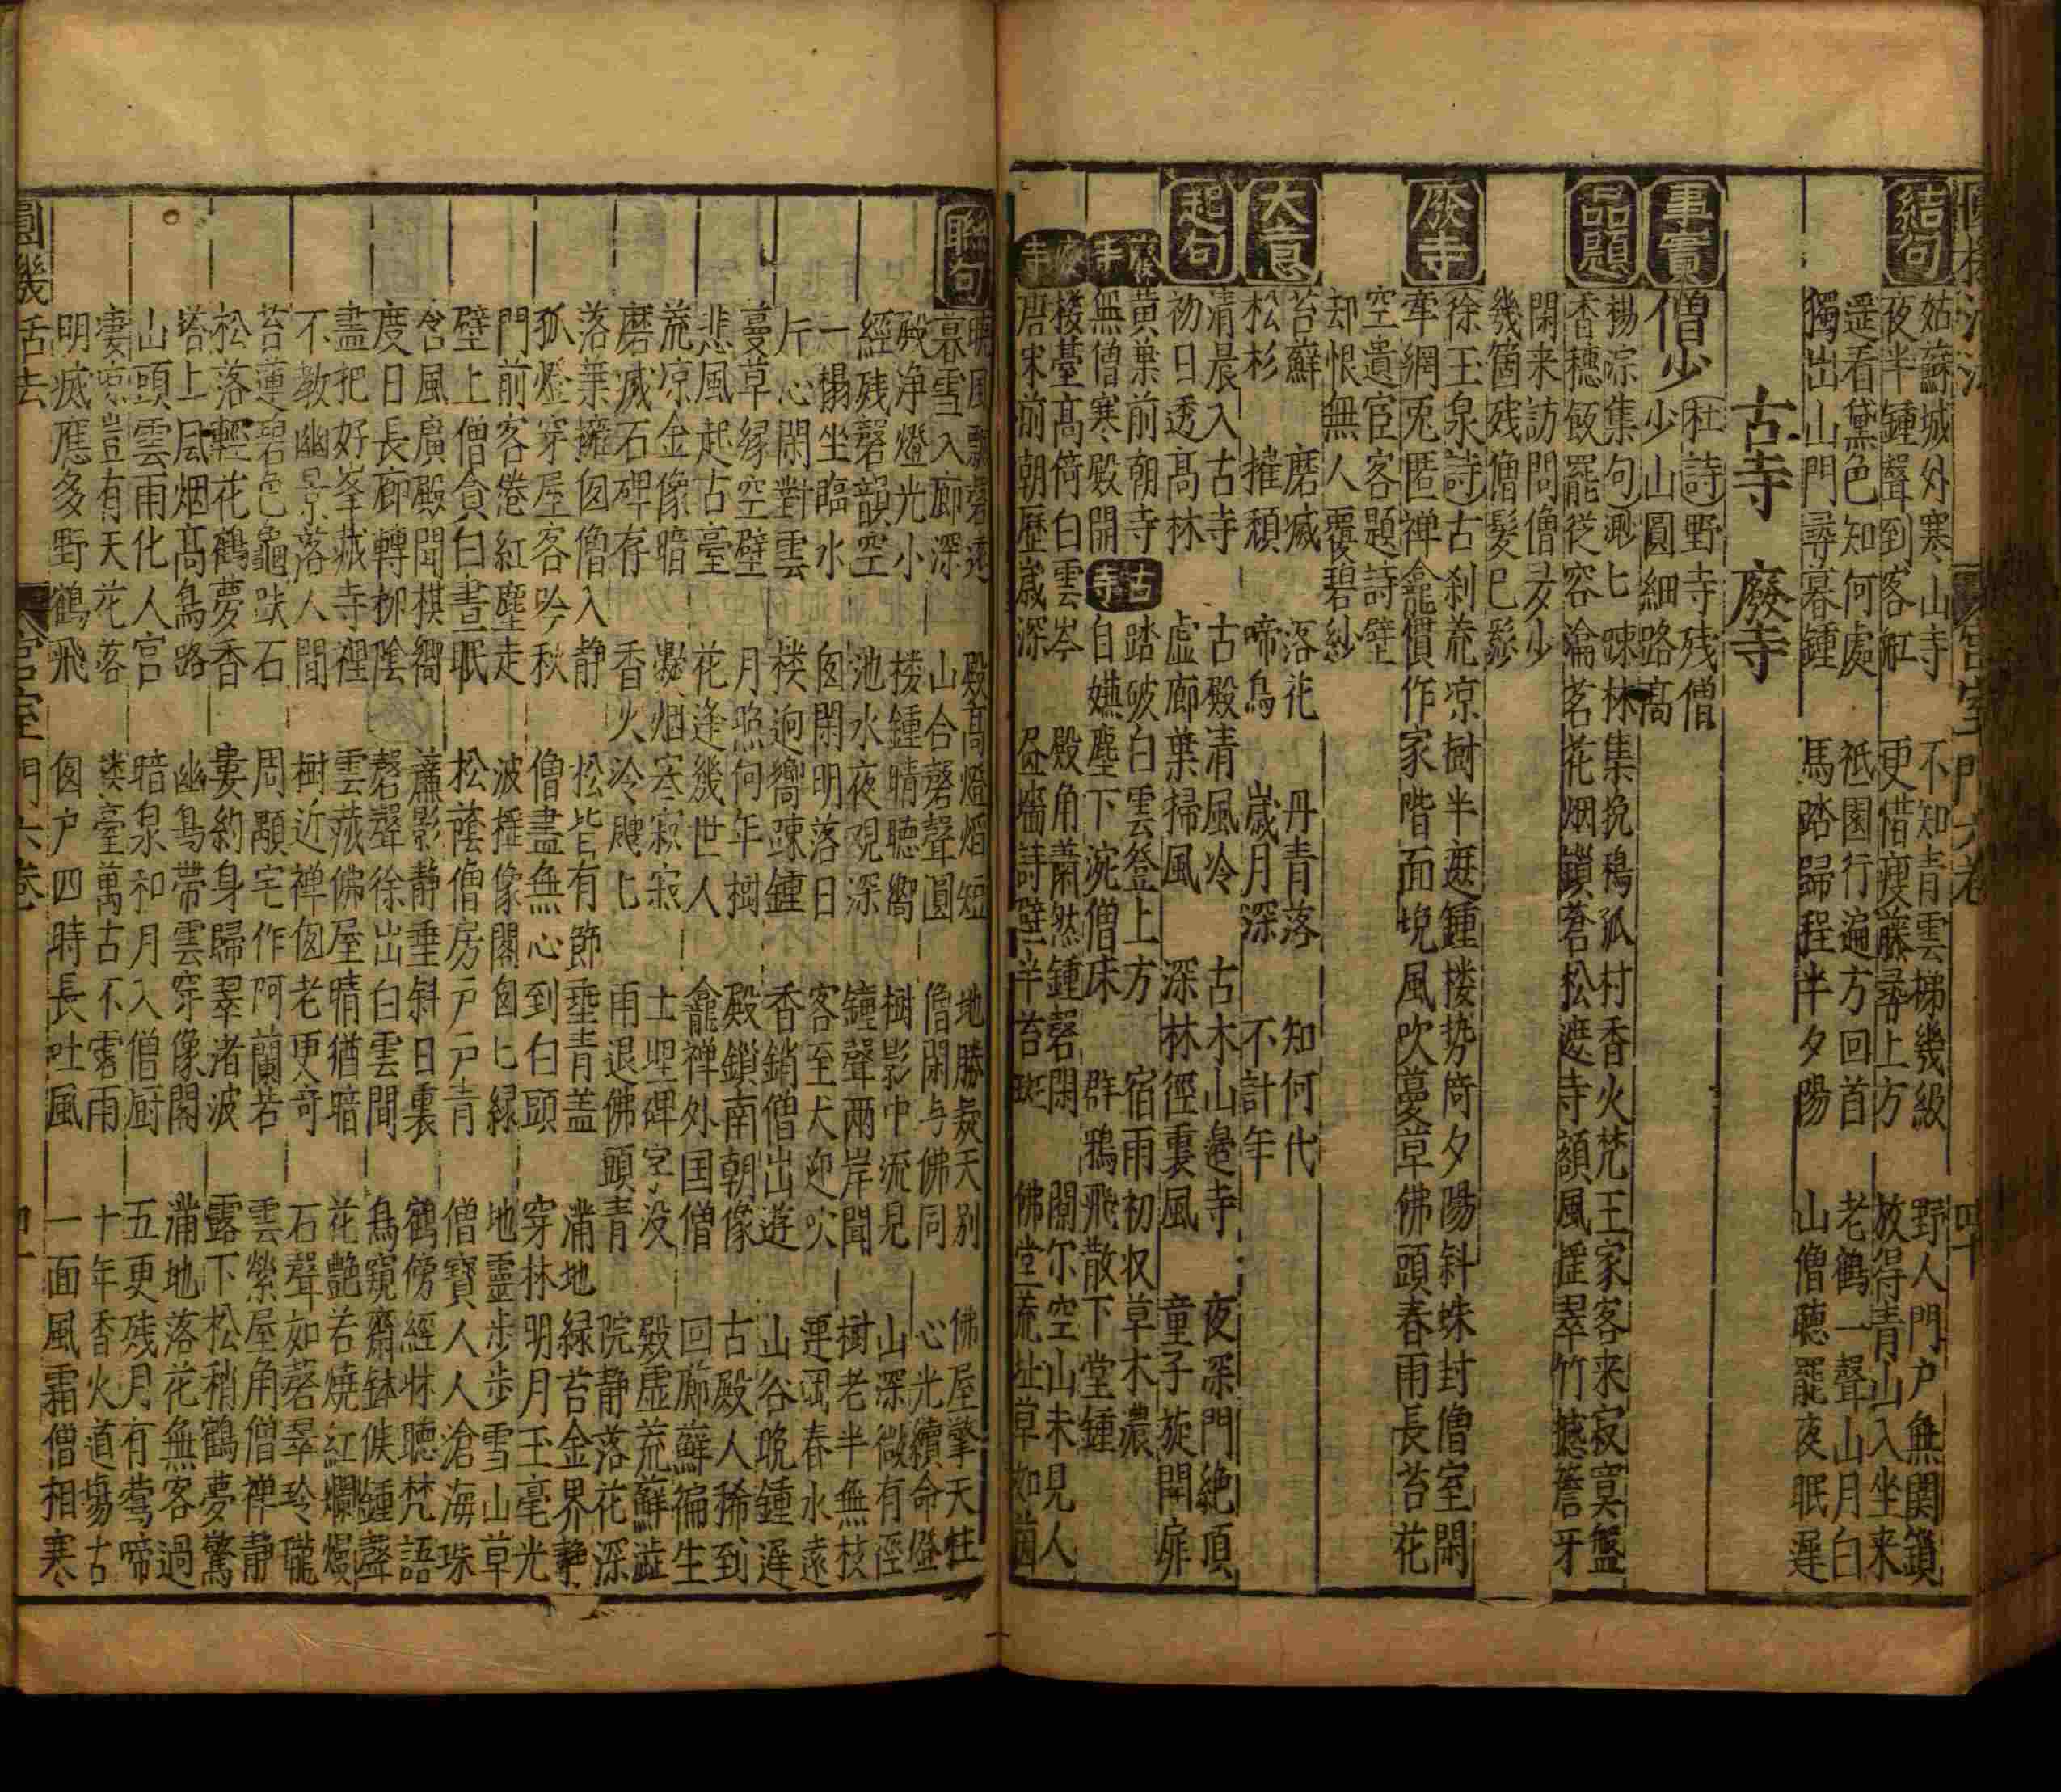 圓機活法 宮室門六卷 四十
結句
姑蘇城外寒山寺 不知青雲梯幾級 野人門户無関鎖
夜半鍾聲到客舡 更惜瘦藤尋上方 放得青山入坐来
遥看黛色知何處 祗園行遍方回首 老鶴一聲山月白
獨出山門尋暮鍾 馬踏歸程半夕陽 山僧聽罷夜眠遲
古寺 廢寺
事實 僧少 杜詩野寺残僧
少山圓細路髙
品題
楊淙集句渺匕踈林集挽鴉孤村香火梵王家客来寂寞盤
香穗飯罷従容瀹茗花烟鎖蒼松遮寺額風揺翠竹撼簷牙
閑来訪問僧多少
幾箇残僧髪已髿
廢寺
徐玉泉詩古刹荒凉樹半遮鍾楼势倚夕陽斜蛛封僧室閑
牽網兎匿禅龕慣作家階面堍風吹蔓草佛頭春雨長苔花
空遺宦客題詩壁
却恨無人覆碧紗
大意
苔蘚 磨滅 落花 丹青落 知何代
松杉 摧頹 啼鳥 歳月深 不計年
起句
清晨入古寺 古殿清風冷 古木山邉寺 夜深門絶頂
初日透髙林 虚廊葉掃風 深林徑裏風 童子旋開扉
廢寺 黄葉前朝寺 古寺 踏破白雲登上方 宿雨初収草木濃
無僧寒殿開 自嫌塵下涴僧床 群鴉飛散下堂鍾
廢寺 楼䑓髙倚白雲岑 殿角蕭然鍾磬閑 闃尔空山未見人
唐宋前朝歴嵗深 墻詩壁半苔斑 佛堂荒址草如茵
聯句
曉風飄磬逺 殿髙燈熖短 地勝疑天别 佛屋擎天柱
暮雪入廊深 山合磬聲圓 僧閑与佛同 心光續命燈
殿净燈光小 楼鍾晴聴嚮 樹影中流見 山深微有徑
經残磬韻空 池水夜𮗚深 鐘聲兩岸聞 樹老半無枝
一榻坐臨水 囱閑明落日 客至犬迎吠 連岡春水遠
斤心閑對雲 楼迥嚮踈鍾 香銷僧出遊 山谷晩鍾遲
蔓草縁空壁 月照何年樹 殿鎖南朝像 古殿人稀到
悲風起古臺 花逢幾世人 龕禅外国僧 回廊蘚徧生
荒凉金像暗 凝烟寒寂寂 土埋碑字没 殿虚荒蘚澁
磨滅石碑存 香火冷颼匕 雨退佛頭青 院静落花深
落葉擁囱僧入静 松皆有節垂青盖 滿地緑苔金界静
孤燈穿屋客吟秋 僧盡無心到白頭 穿林明月玉毫光
門前客倦紅塵走 波摇像閣囱匕緑 地靈步步雪山草
壁上僧貪白晝眠 松蔭僧房戸戸青 僧寳人人滄海珠
含風廣殿聞棋嚮 簾影静垂斜日裏 鶴傍經牀聴梵語
度日長廊轉柳陰 磬聲徐出白雲間 鳥窺齋鉢候鍾聲
盡把好峯蔵寺裡 雲蔵佛屋晴猶暗 花艶若燒紅爛熳
不教幽景落人間 樹近禅囱老更竒 石聲如磬翠玲瓏
苔蓮碧色龜趺石 周顒宅作阿蘭若 雲縈屋角僧禅静
松落輕花鶴夢香 婁約身歸翠渚波 露下松稍鶴夢驚
塔上風烟髙鳥路 幽鳥帶雲穿像閣 滿地落花無客過
山頭雲雨化人宫 暗泉和月入僧厨 五更残月有鶯啼
凄凉豈有天花落 楼臺萬古不霑雨 十年香火道塲古
明滅應多野鶴飛 囱户四時長吐風 一面風霜僧相寒
圓機活法 宮室門六卷 四一